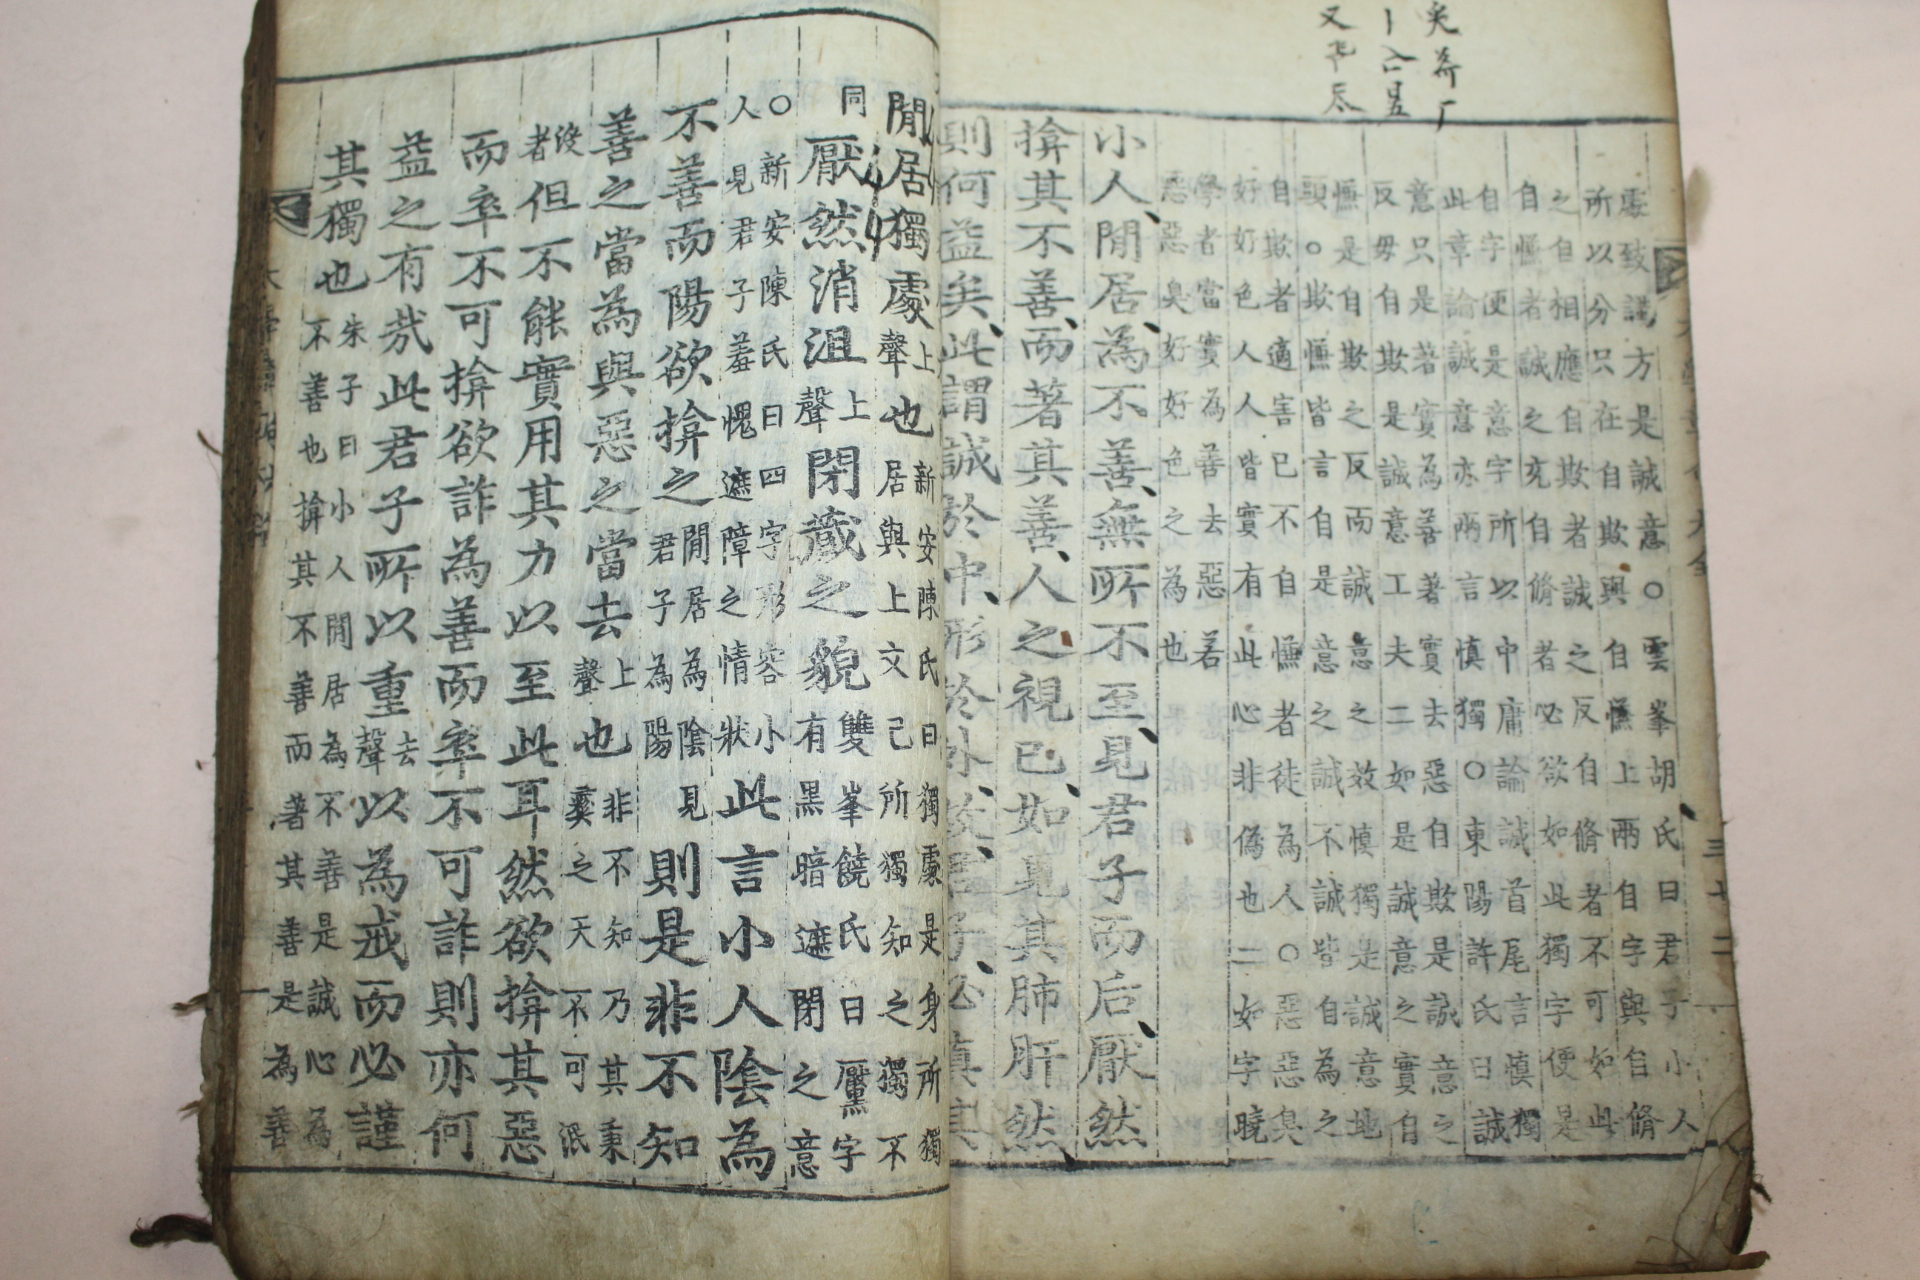 處致謹方是誠意○雲峯胡氏曰君子小人
所以分只在自欺與自慊上兩自字與自脩
之自相應自欺者誠之反自脩者不可如此
自慊者誠之充自脩者必欲如此獨字便是
自字便是意字所以中庸論誠首尾言慎獨
此章論誠意亦兩言慎獨○東陽許氏曰誠
意只是著實為善著實去惡自欺是誠意之
反毋自欺是誠意工夫二如是誠意之實自
慊是自欺之反而誠意之效慎獨是誠意地
頭○欺慊皆言自是意之誠不誠皆自為之
自欺者適害己不自慊者徒為人○惡惡臭
好好色人人皆實有此心非偽也二如字曉
學者當實為善去惡若
惡惡臭好好色之為也
小人閒居為不善無所不至見君子而后厭然
揜其不善而著其善人之視己如見其肺肝然
則何益矣此謂誠於中形於外故君子必慎其
閒居獨處上聲也新安陳氏曰獨處是身所獨
居與上文己所獨知之獨不
同厭然消沮上聲閉藏之貌雙峯饒氏曰黶字
有黑暗遮閉之意
○新安陳氏曰四字形容小
人見君子羞愧遮障之情狀此言小人陰為
不善而陽欲揜之閒居為陰見君子為陽則是非不知
善之當為與惡之當去上聲也非不知乃其秉
彛之天不可泯
沒者但不能實用其力以至此耳然欲揜其惡
而卒不可揜欲詐為善而卒不可詐則亦何
益之有哉此君子所以重去聲以為戒而必謹
其獨也朱子曰小人閒居為不善是誠心為
不善也揜其不善而著其善是為善